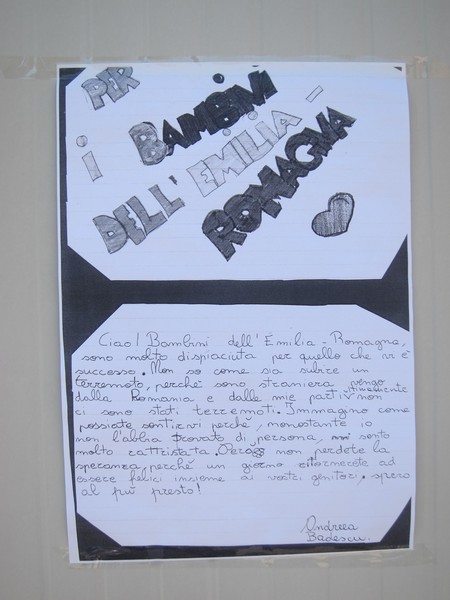 PER
I BAMBINI
DELL' EMILIA-
ROMAGNA
Ciao! Bambini dell'Emilia-Romagna,
sono molto dispiaciuta per quello che vi è
successo. Non so come sia subire un
terremoto, perché sono straniera, vengo
dalla Romania e dalle mie parti ultimamente non
ci sono stati terremoti. Immagino come
possiate sentirvi perché, nonostante io
non l'abbia provato di persona, mi sento
molto rattristata. Però non perdete la
speranza, perché un giorno ritornerete ad
essere felici insieme ai vostri genitori, spero
al più presto!
Andreea
Badescu.